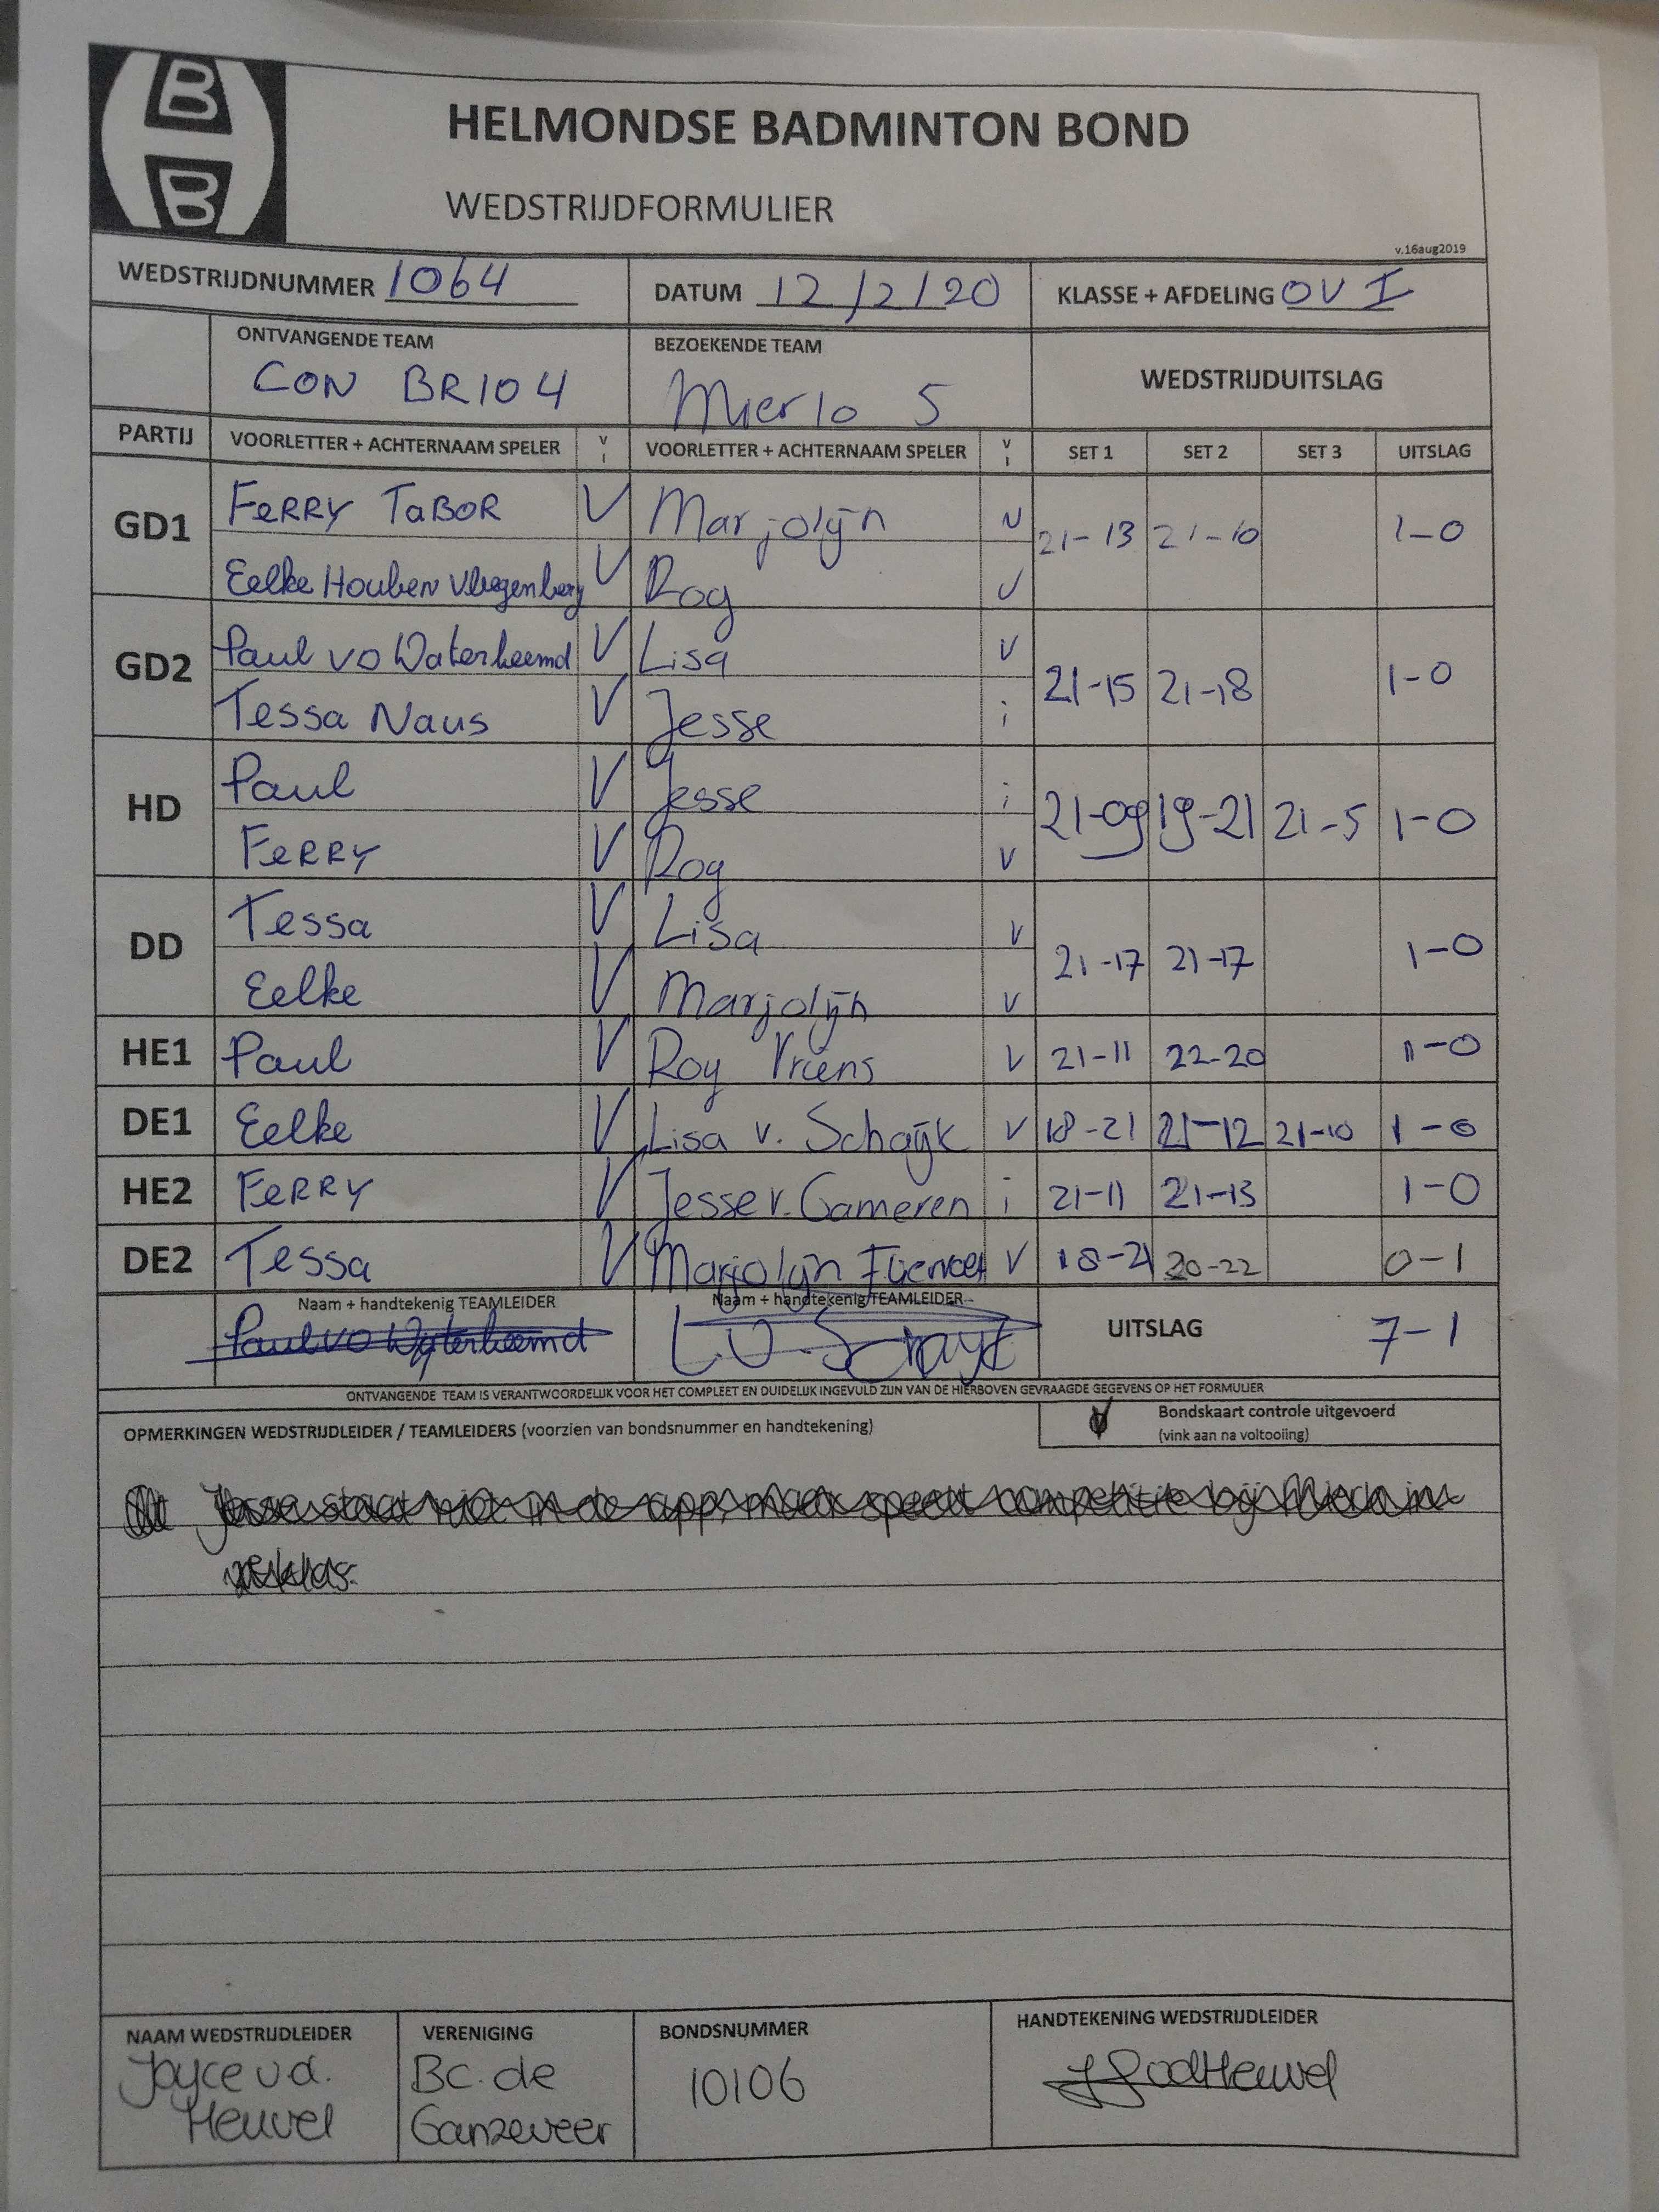 B
B
HELMONDSE BADMINTON BOND
WEDSTRIJDFORMULIER
v.16aug2019
WEDSTRIJDNUMMER 1064 DATUM 12/2/20 KLASSE + AFDELING OV I
ONTVANGENDE TEAM BEZOEKENDE TEAM WEDSTRIJDUITSLAG
CON BRIO 4 Mierlo 5
PARTIJ VOORLETTER + ACHTERNAAM SPELER V I VOORLETTER + ACHTERNAAM SPELER V I SET 1 SET 2 SET 3 UITSLAG
GD1 FeRRY TaBOR V Marjolijn V 21-13 21-10 1-0
Eelke Houben Vliegenberg V Roy V
GD2 Paul vd Waterbeemd V Lisa V 21-15 21-18 1-0
Tessa Naus V Jesse i
HD Paul V Jesse i 21-09 19-21 21-5 1-0
FeRRY V Roy V
DD Tessa V Lisa V 21-17 21-17 1-0
Eelke V Marjolijn V
HE1 Paul V Roy Vriens V 21-11 22-20 1-0
DE1 Eelke V Lisa v. Schaijk V 18-21 21-12 21-10 1-0
HE2 FeRRY V Jesse v. Gameren i 21-11 21-13 1-0
DE2 Tessa V Marjolijn V 18-21 20-22 0-1
Naam + handtekenig TEAMLEIDER Naam + handtekenig TEAMLEIDER
Paul vd Waterbeemd L.v.Schayk UITSLAG 7-1
ONTVANGENDE TEAM IS VERANTWOORDELIJK VOOR HET COMPLEET EN DUIDELIJK INGEVULD ZIJN VAN DE HIERBOVEN GEVRAAGDE GEGEVENS OP HET FORMULIER
OPMERKINGEN WEDSTRIJDLEIDER / TEAMLEIDERS (voorzien van bondsnummer en handtekening) V Bondskaart controle uitgevoerd
(vink aan na voltooiing)
Jesse staat niet in de app, maar speelt competitie bij Mierlo in
NAAM WEDSTRIJDLEIDER VERENIGING BONDSNUMMER HANDTEKENING WEDSTRIJDLEIDER
Joyce v.d. Bc. de 10106 JvdHeuvel
Heuvel Ganzeveer